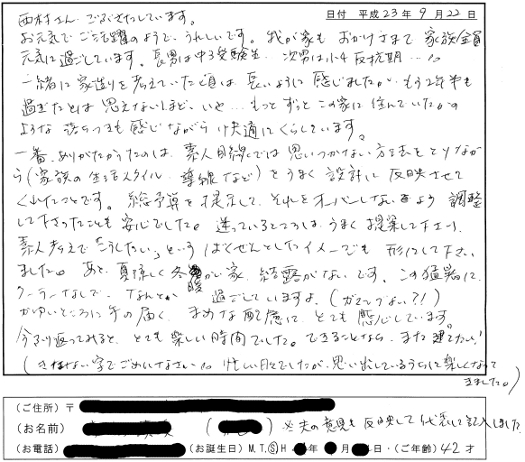 日付 平成23年9月22日
西村さん ごぶさたしています。
お元気でご活躍のようで、うれしいです。我が家も おかげさまで 家族全員
元気に過ごしています。長男は中3受験生、次男は小4反抗期…。
一緒に家造りを考えていた頃は 長いように感じましたが、もう2年半も
過ぎたとは 思えないほど、いや… もっと ずっとこの家に住んでいたかの
ような 落ちつきも感じながら 快適にくらしています。
一番、ありがたかったのは、素人目線では 思いつかない方法をとりなが
ら(家族の生活スタイル、導線など)をうまく設計に反映させて
くれたことです。総予算を提示して、それをオーバーしないよう 調整
して下さったことも安心でした。迷っているところは、うまく提案して下さり、
素人考えで「こうしたい」という ばくぜんとしたイメージでも 形にして下さい
ました。あと、夏涼しく冬暖かい家、結露がないです。この猛暑に
クーラーなしで、なんとか 過ごしていますよ。(ガマンづよい?!)
かゆいところに手の届く、まめな配慮に とても 感心しています。
今ふり返ってみると、とても楽しい時間でした。できることなら、また建てたい!
(きたない字でごめんなさい。忙しい日々でしたが、思い出しているうちに楽しくなって
きました。)
(ご住所)〒
(お名前) ( ) ※夫の意見も反映して代表して記入しました
(お電話) (お誕生日)M.T.Ⓢ.H 年 月 日・(ご年齢)42才